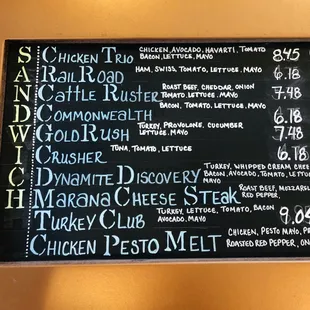 SANDWICH
CHICKEN TRIO CHICKEN, AVOCADO, HAVARTI, TOMATO 8.45
BACON, LETTUCE, MAYO
RAIL ROAD HAM, SWISS, TOMATO, LETTUCE, MAYO 6.18
CATTLE RUSTER ROAST BEEF, CHEDDAR, ONION 7.48
TOMATO, LETTUCE, MAYO
COMMONWEALTH BACON, TOMATO, LETTUCE, MAYO 6.18
GOLD RUSH TURKEY, PROVOLONE, CUCUMBER 7.48
LETTUCE, MAYO
CRUSHER TUNA, TOMATO, LETTUCE 6.18
DYNAMITE DISCOVERY TURKEY, WHIPPED CREAM CHEE
BACON, AVOCADO, TOMATO, LET
MAYO
MARANA CHEESE STEAK ROAST BEEF, MOZZAREL
RED PEPPER,
TURKEY CLUB TURKEY, LETTUCE, TOMATO, BACON 9.04
AVOCADO, MAYO
CHICKEN PESTO MELT CHICKEN, PESTO MAYO, PR
ROASTED RED PEPPER, ON